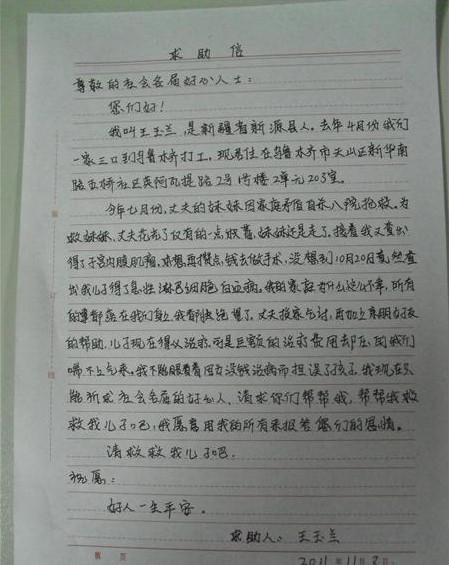 求助信
尊敬的社会各届好心人士:
您们好!
我叫王玉兰,是新疆省新源县人。去年4月份我们
一家三口到乌鲁木齐打工,现居住在乌鲁木齐市天山区新华南
路五桥社区英阿瓦提路2号1号楼2单元203室。
今年七月份,丈夫的妹妹因家庭矛盾自杀入院抢救。为
救妹妹,丈夫花光了仅有的一点积蓄,妹妹还是走了。接着我又查出
得了子宫内膜肌瘤,本想再攒点钱去做手术,没想到10月20日竟然查
出我儿子得了急性淋巴细胞白血病。我的家庭为什么这么不幸,所有
的事都落在我们身上,我都快绝望了。丈夫挨家乞讨,再加上亲朋好友
的帮助,儿子现在得以治疗,可是巨额的治疗费用却压的我们
喘不上气来。我不能眼看着因为没钱治病而担误了孩子。我现在只
能祈求社会各届的好心人、请求你们帮帮我,帮帮我救
救我儿子吧,我愿意用我的所有来报答您们的恩情。
请救救我儿子吧。
祝愿:
好人一生平安。
求助人:王玉兰
2011年11月2日
第 页